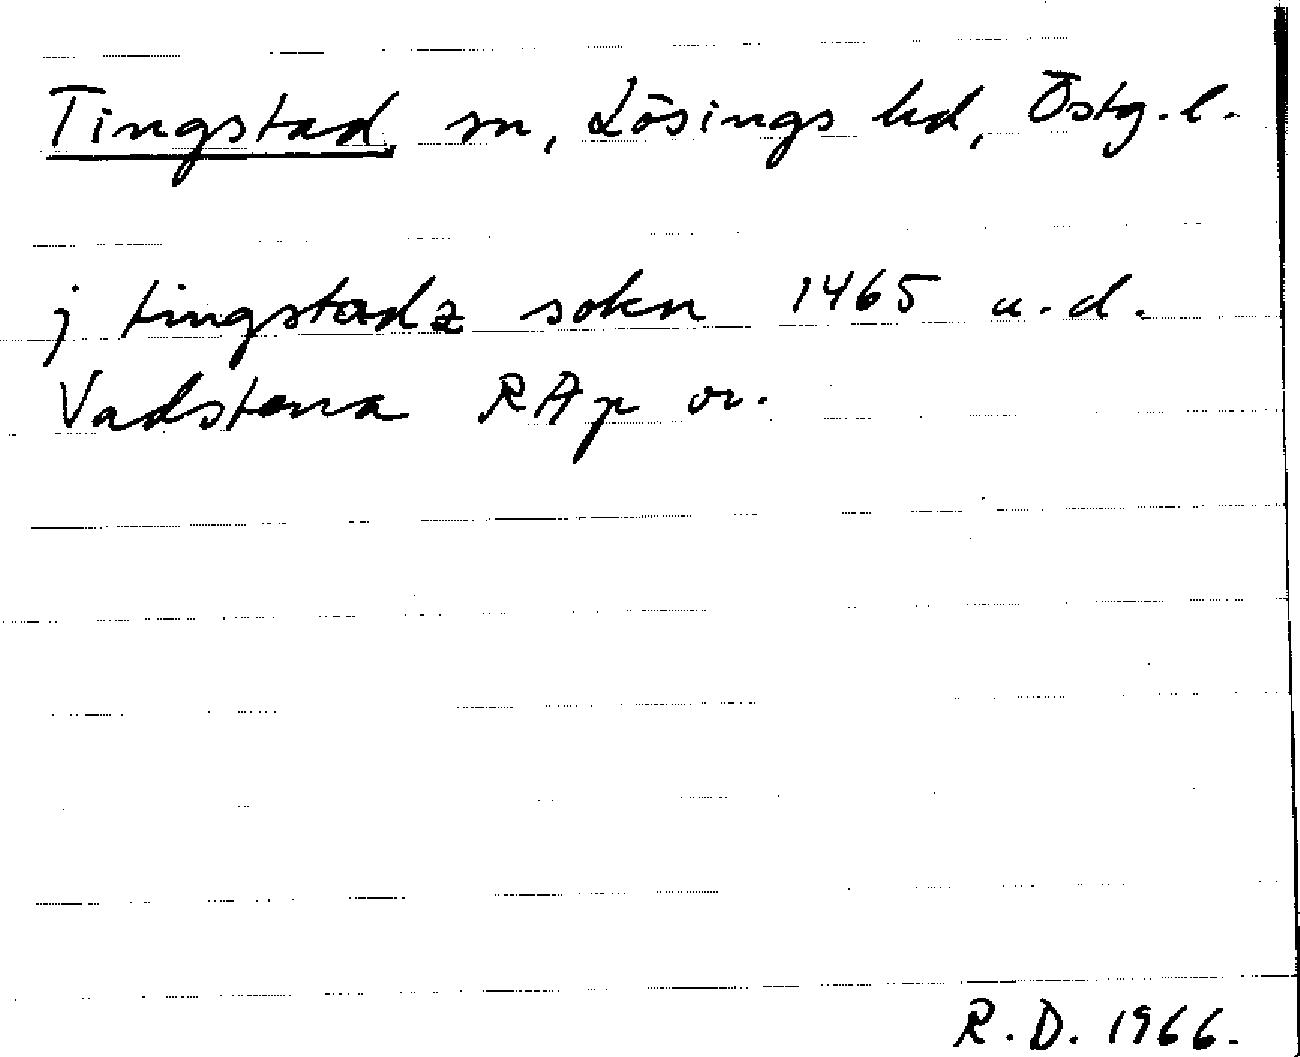 Tingstad, sn, Lösings hd, Östg.l.
j tingstadz sokn 1465 u.d.
Vadstena RAp or.
R.D. 1966.